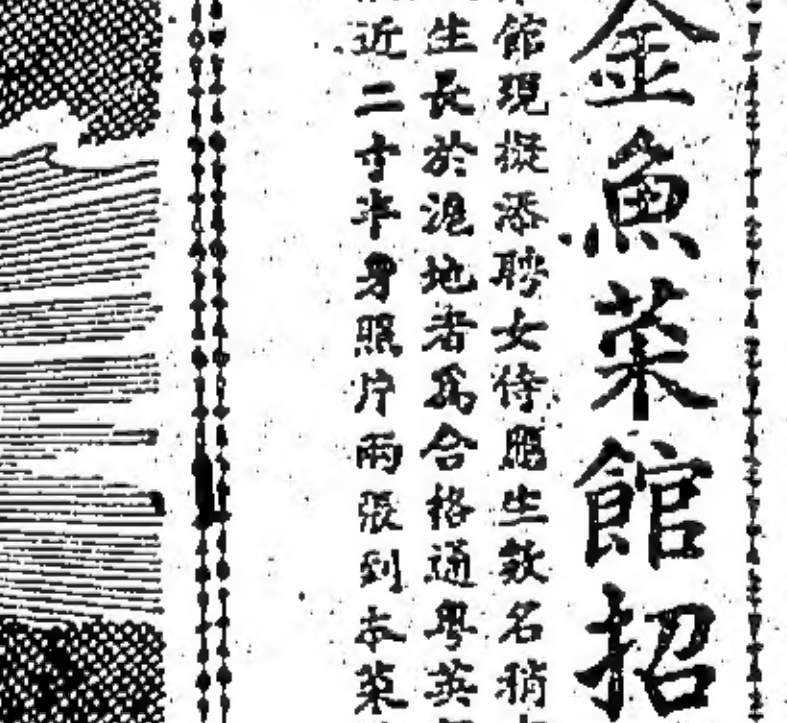 金魚菜館招
館現擬添聘女侍應生數名稍
生長於滬地者爲合格通粵英
近二寸半身照片兩張到本菜